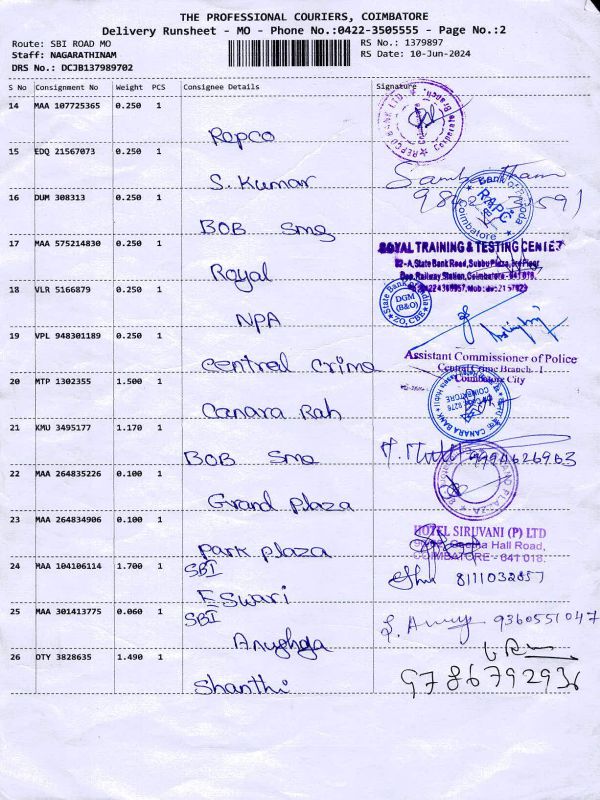 THE PROFESSIONAL COURIERS, COIMBATORE
Delivery Runsheet - MO - Phone No.:0422-3505555 - Page No.:2
Route: SBI ROAD MO
RS No.: 1379897
Staff: NAGARATHINAM
RS Date: 10-Jun-2024
DRS No.: DCJB137989702
S No Consignment No Weight PCS Consignee Details Signature
14 MAA 107725365 0.250 1
Repco
REPCO BANK LTD. Corporate Branch
15 EDQ 21567073 0.250 1
S. Kumar
16 DUM 308313 0.250 1
BOB Smg
Bank of Baroda
RAPC
Coimbatore
17 MAA 575214830 0.250 1
Royal
ROYAL TRAINING & TESTING CENTER
82-A, State Bank Road, Subbu Plaza, 3rd Floor
Opp. Railway Station, Coimbatore - 641 018.
18 VLR 5166879 0.250 1
NPA
State Bank of India
DGM
(B&O)
ZO, CBE
19 VPL 948301189 0.250 1
Central Crime
Assistant Commissioner of Police
Central Crime Branch - I
Coimbatore City
20 MTP 1302355 1.500 1
Canara Rah
CANARA BANK
COIMBATORE
21 KMU 3495177 1.170 1
BOB Sme
9994626963
22 MAA 264835226 0.100 1
Grand Plaza
GRAND PLAZA
23 MAA 264834906 0.100 1
Park Plaza
HOTEL SIRUVANI (P) LTD
Hall Road,
COIMBATORE - 641 018.
24 MAA 104106114 1.700 1
SBI
Eswari
8111032857
25 MAA 301413775 0.060 1
SBI
Anushya
9360551047
26 DTY 3828635 1.490 1
Shanthi
9786792936